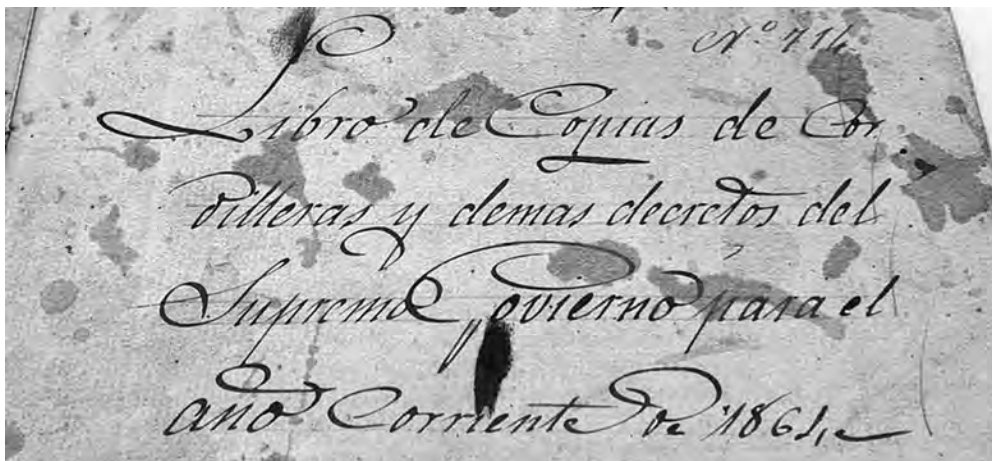 Nº 714
Libro de Copias de Cor
dilleras y demas decretos del
Supremo Govierno para el
año Corriente de 1861,,